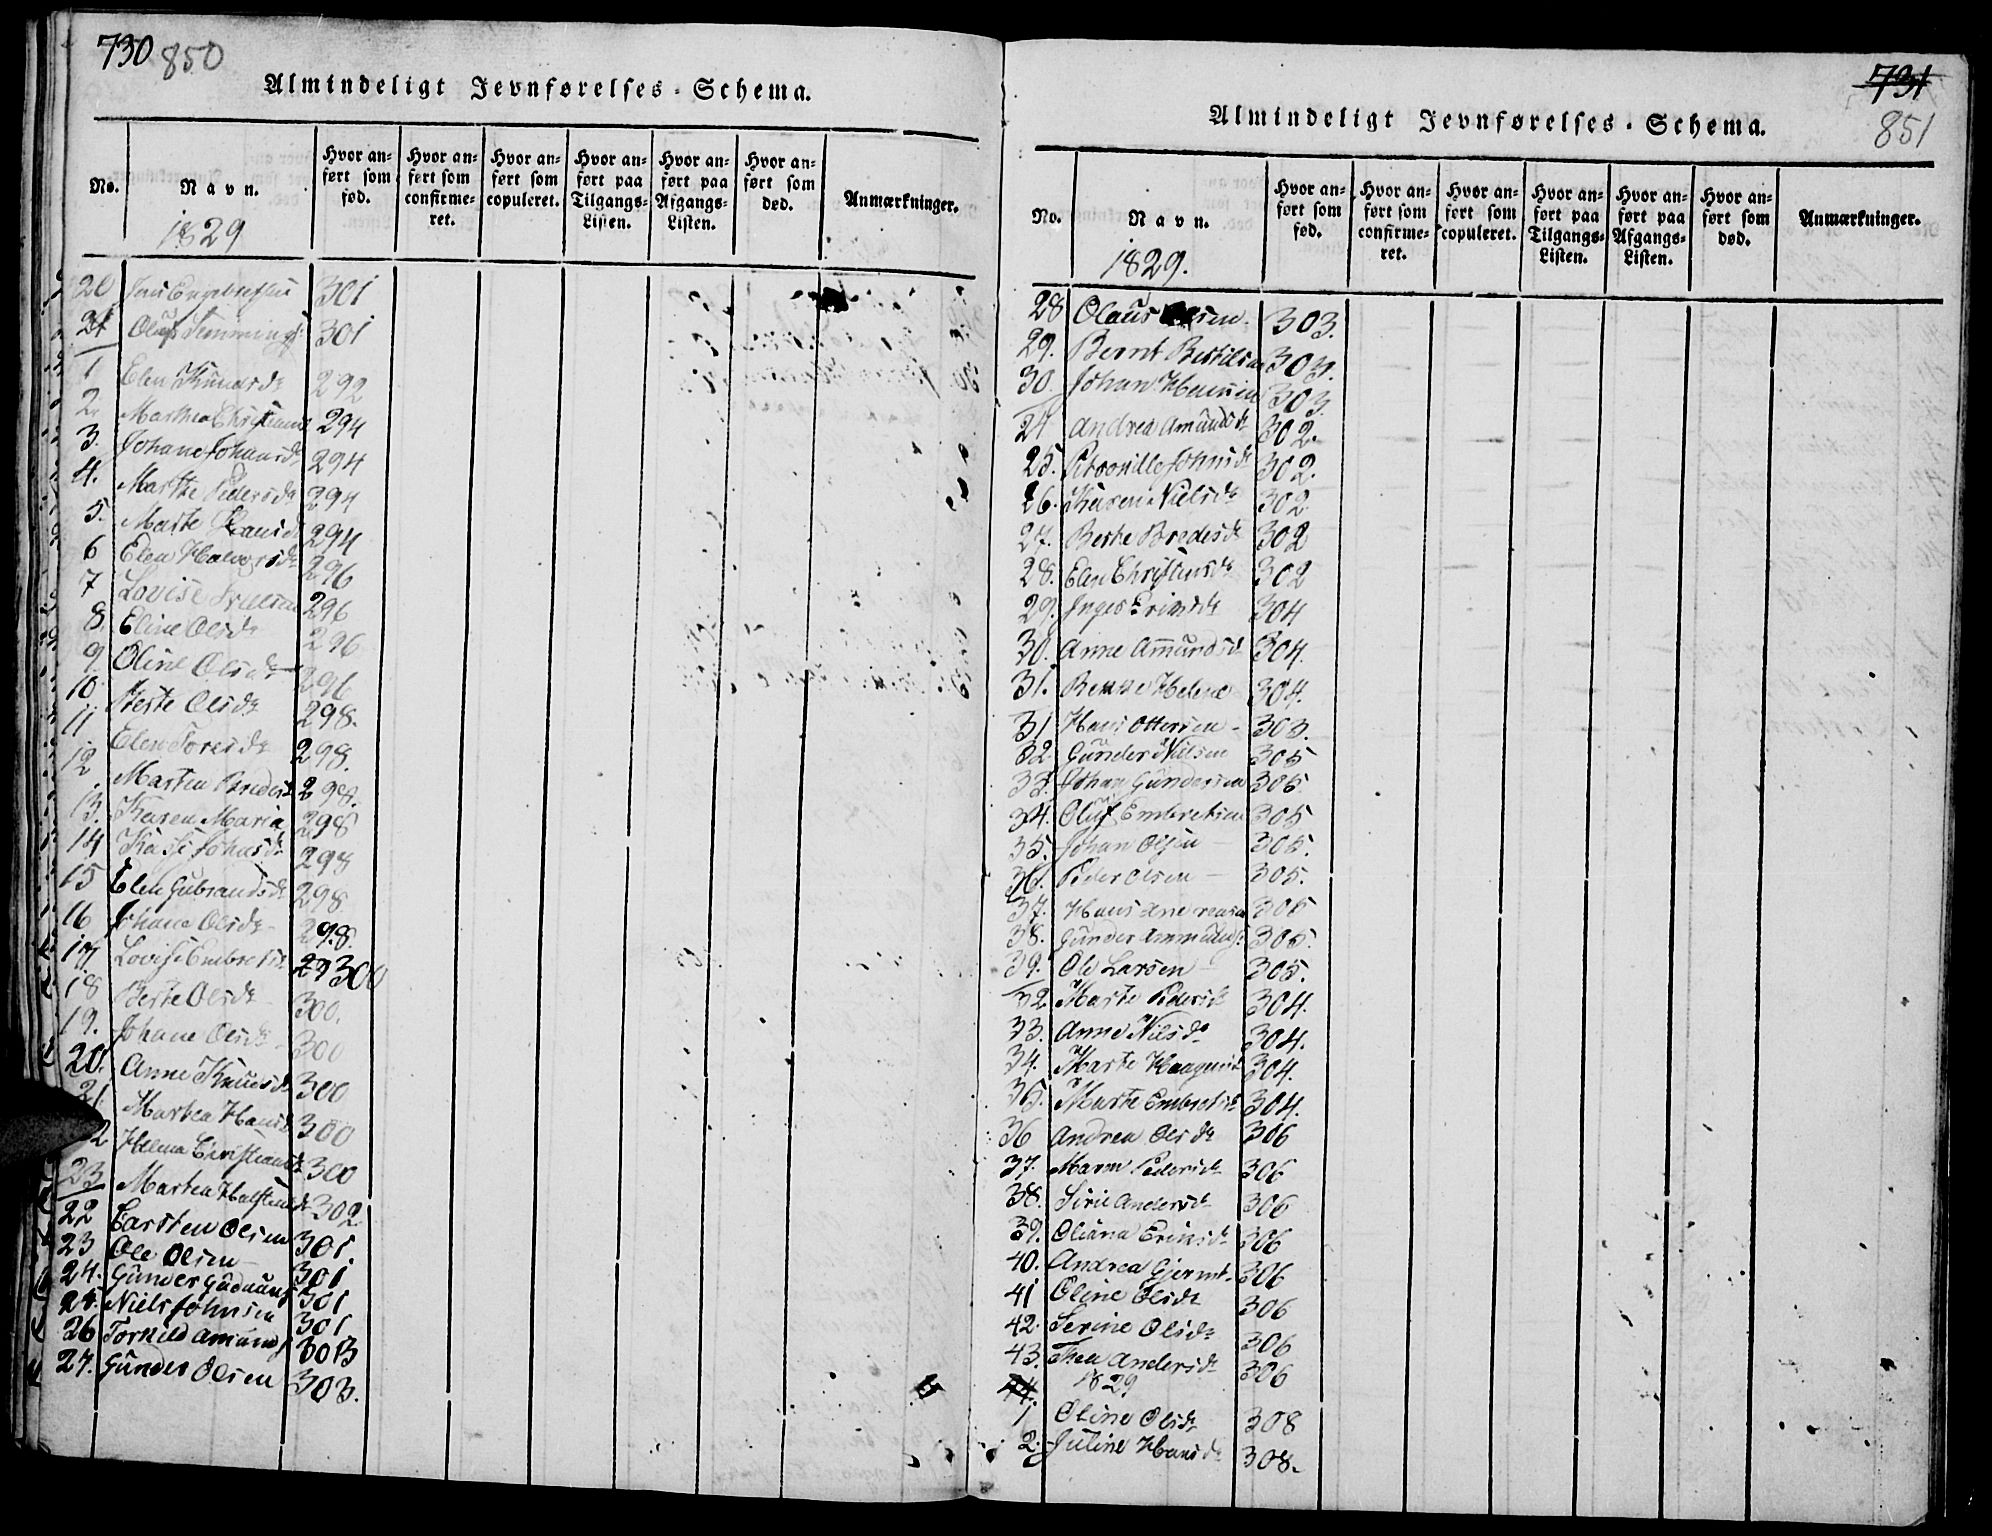 730 850
Almindeligt Jevnførelses-Schema.
No.
Navn.
Hvor anført som fød.
Hvor anført som confirmeret.
Hvor anført som copuleret.
Hvor anført paa Tilgangs-Listen.
Hvor anført paa Afgangs-Listen.
Hvor anført som død.
Anmærkninger.
1829
20 Jens Engebretsen 301
21 301
1 Elen Knudsdr 292
2. Marthea Christians 294
3. Johane Johansdr 294
4. Marthe Pedersdr 294
5. Marte Hansdr 294
6 Elen Halvorsdr 296
7 Lovise 296
8. Eline Olsdr 296
9. Oline Olsdr 296
10. Olsdr 298.
11 Elen Toresdr 298.
12 Marten 298.
13. Karen Maria 298
14 Johansdr 298
15 Elen Gubrandsdr 298
16 Johane Olsdr 298.
17 Lovise Embretsdr 300
18 Berte Olsdr 300.
19. Johane Olsdr 300
20. Anne Knudsdr 300
21. Marthea Hansdr 300
2 Helena Christiansdr 300
23 Marthea 302
22 Carsten Olsen 301.
23 Ole Olsen 301
24. Gunder 301
25. Niels Johnsen 301
26 Torkild Amunds 303
27. Gunder Olsen 303.
731
851
Almindeligt Jevnførelses-Schema.
No.
Navn.
Hvor anført som fød.
Hvor anført som confirmeret.
Hvor anført som copuleret.
Hvor anført paa Tilgangs-Listen.
Hvor anført paa Afgangs-Listen.
Hvor anført som død.
Anmærkninger.
1829.
28 Olaus 303.
29. Bernt Bertilsen 303.
30. Johan Hansen 303.
24 Andrea Amundsdr 302.
25. Petronille Johnsdr 302.
26. Karen Nielsdr 302
27. Berthe Bredesdr 302
28. Elen Christensdr 302
29. Inger Ericsdr 304
30. Anne Amundsdr 304.
31. Helene 304.
31 Hans Ottersen 303.
32. Gunder Nilsen 305
33. Johan Gundersen 305.
34. Oluf Embretsen 305
35. Johan Olsen 305.
36. Peder Olsen 305.
37. Hans Andreas 305
38. Gunder Ammunds 305.
39. Ole Larsen 305.
32. Marte Pedersdr 304.
33. Anne Nilsdr 304.
34. Marte Haagensdr 304.
35. Marte Embretsdr 304.
36 Andrea Olsdr 306
37. Maren Pedersdr 306
38. Sirie Andersdr 306
39. Oliana Ericsdr 306
40. Andrea Gjermt. 306
41 Oline Olsdr 306
42. Serine Olsdr 306
43. Thea Andersdr 306
44. 1829
1 Oline Olsdr 308
2. Juline Hansdr 308.